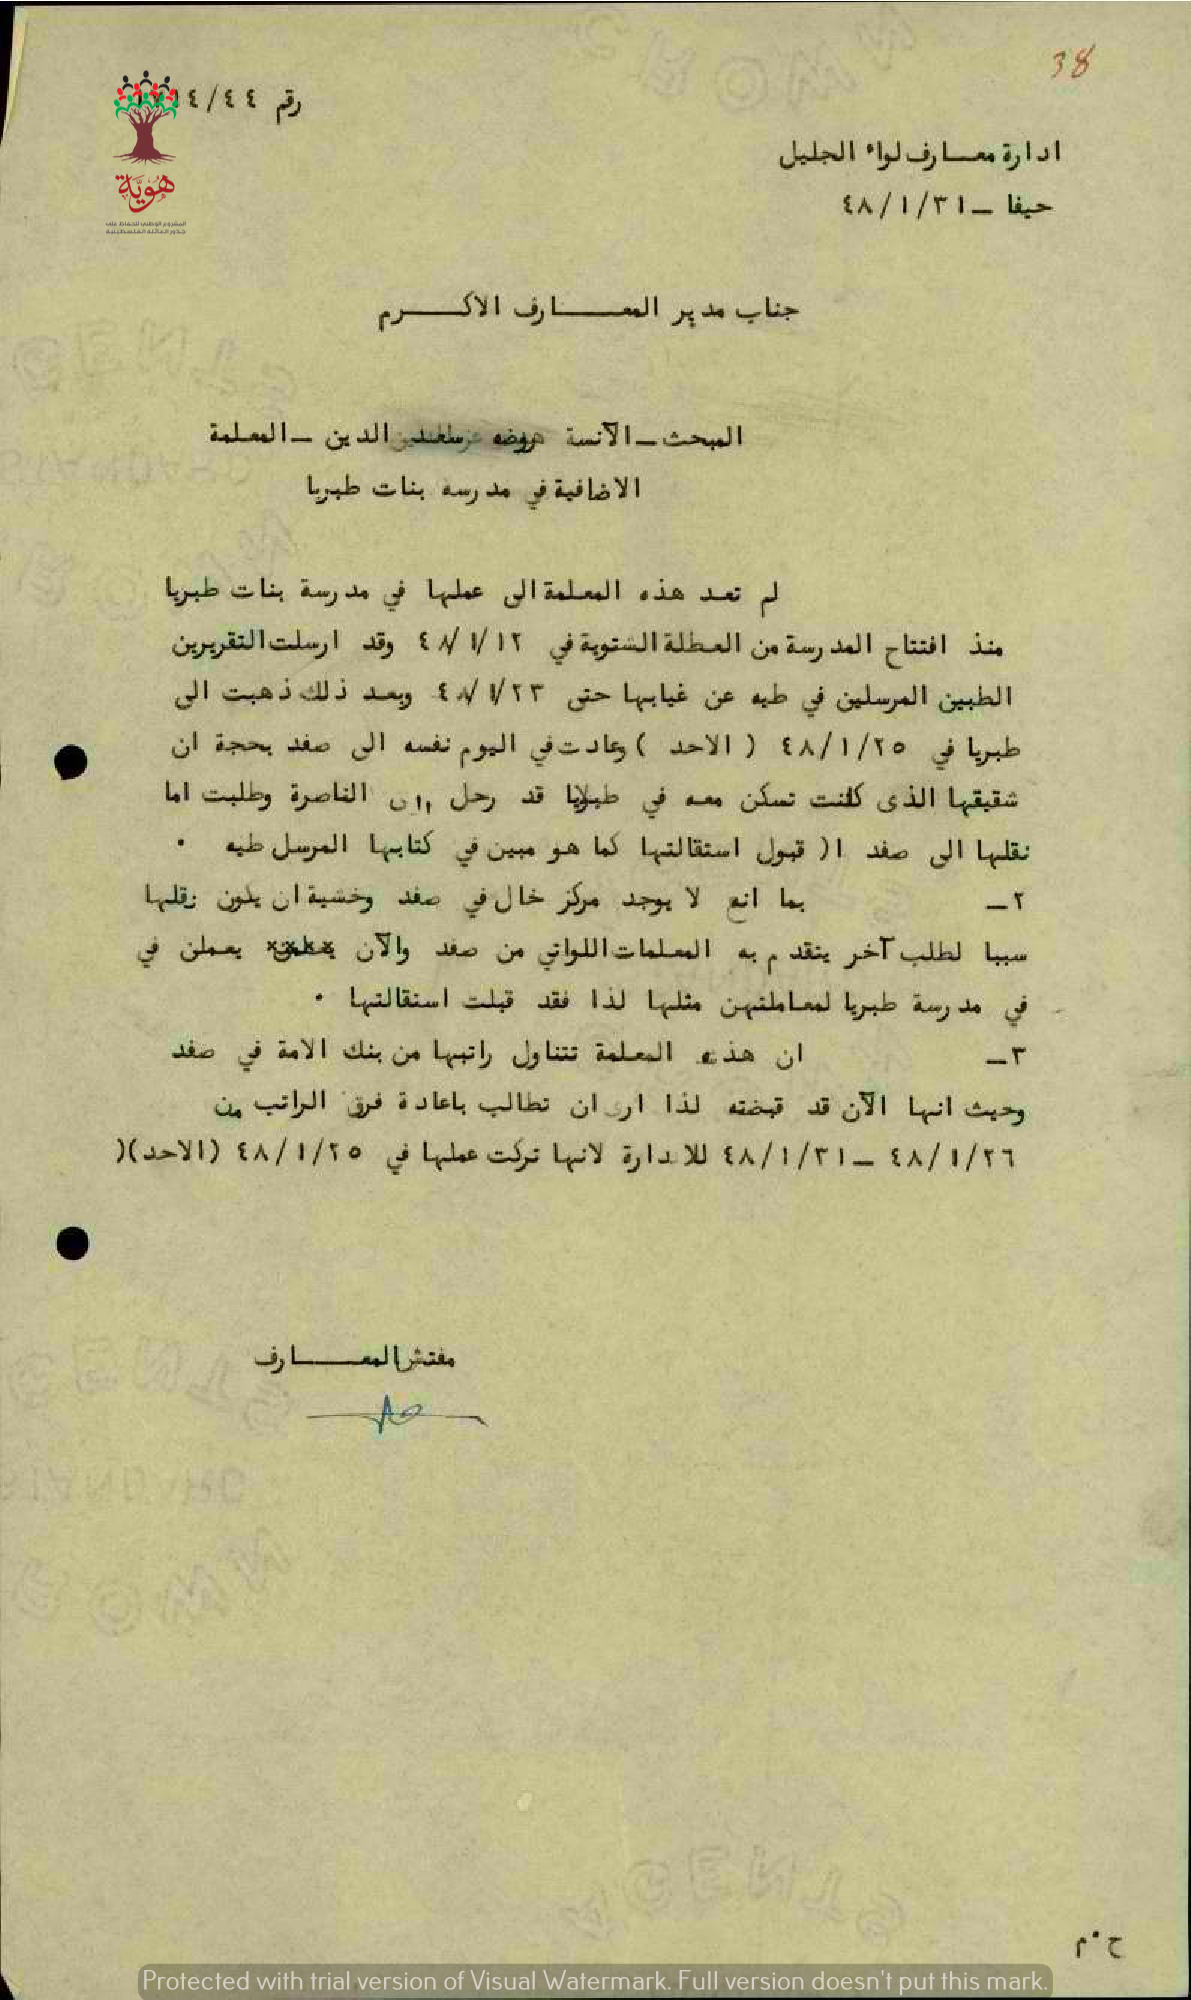 38
رقم ١٤/٤٤
هُوِيَّة
المشروع الوطني للحفاظ على
جذور العائلة الفلسطينية
ادارة معارف لواء الجليل
حيفا – ٤٨/١/٣١
جناب مدير المعـــارف الاكـــرم
المبحث – الآنسة روضه الدين – المعلمة
الاضافية في مدرسه بنات طبريا
لم تعد هذه المعلمة الى عملها في مدرسة بنات طبريا
منذ افتتاح المدرسة من العطلة الشتوية في ٤٨/١/١٢ وقد ارسلت التقريرين
الطبين المرسلين في طيه عن غيابها حتى ٤٨/١/٢٣ وبعد ذلك ذهبت الى
طبريا في ٤٨/١/٢٥ ( الاحد ) وعادت في اليوم نفسه الى صفد بحجة ان
شقيقها الذى كانت تسكن معه في طبريا قد رحل الناصرة وطلبت اما
نقلها الى صفد ا( قبول استقالتها كما هو مبين في كتابها المرسل طيه ٠
٢– بما انع لا يوجد مركز خال في صفد وخشية ان يكون نقلها
سببا لطلب آخر يتقدم به المعلمات اللواتي من صفد والآن يعملن في
في مدرسة طبريا لمعاملتهن مثلها لذا فقد قبلت استقالتها ٠
٣– ان هذه المعلمة تتناول راتبها من بنك الامة في صفد
وحيث انها الآن قد قبضته لذا ارى ان تطالب باعادة فرق الراتب من
٤٨/١/٢٦ – ٤٨/١/٣١ للادارة لانها تركت عملها في ٤٨/١/٢٥ (الاحد)(
مفتش المعـــارف
ح٠م
Protected with trial version of Visual Watermark. Full version doesn't put this mark.